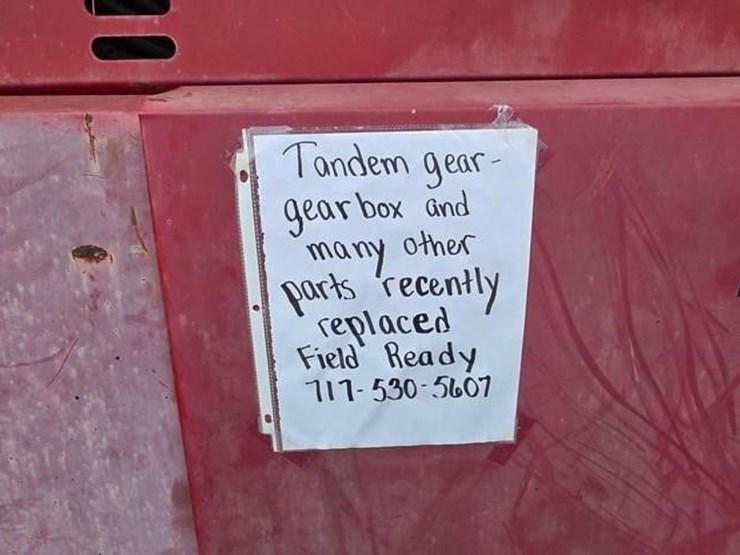 Tandem gear-
gear box and
many other
parts recently
replaced
Field Ready
717-530-5607